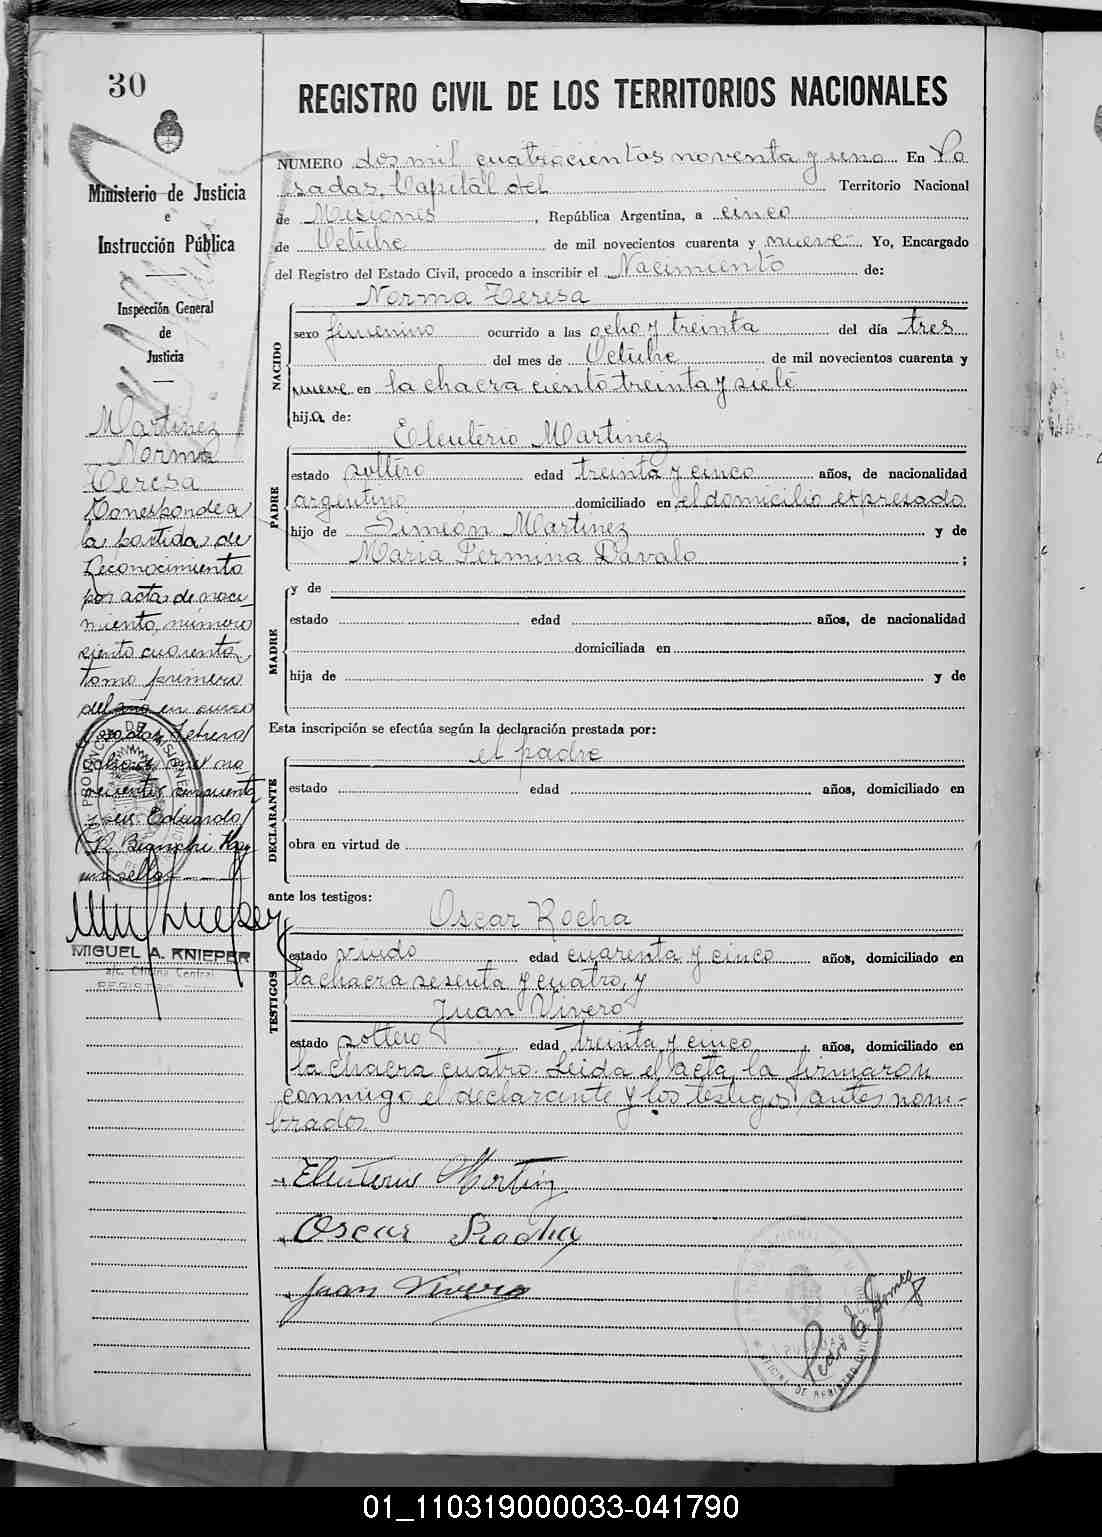 30
Ministerio de Justicia
e
Instrucción Pública
Inspección General
de
Justicia
Martinez
Norma
Teresa
Corresponde a
la partida de
Reconocimiento
por acta de naci
miento, número
ciento cuarenta
tomo primero
del año en curso
Posadas, Febrero
mil no
vecientos cincuenta
Eduardo
R. Bianchi Hay
un sello
MIGUEL A. KNIEPER
a/c. Oficina Central
REGISTRO
PROVINCIA DE MISIONES
REGISTRO CIVIL DE LOS TERRITORIOS NACIONALES
NUMERO dos mil cuatrocientos noventa y uno En Po
sadas, Capital del Territorio Nacional
de Misiones, República Argentina, a cinco
de Octubre de mil novecientos cuarenta y nueve Yo, Encargado
del Registro del Estado Civil, procedo a inscribir el Nacimiento de:
NACIDO
Norma Teresa
sexo femenino ocurrido a las ocho y treinta del día tres
del mes de Octubre de mil novecientos cuarenta y
nueve en la chacra ciento treinta y siete
hija de:
PADRE
Eleuterio Martinez
estado soltero edad treinta y cinco años, de nacionalidad
argentino domiciliado en el domicilio expresado
hijo de Simeón Martinez y de
Maria Fermina Davalo ;
MADRE
y de
estado edad años, de nacionalidad
domiciliada en
hija de y de
Esta inscripción se efectúa según la declaración prestada por:
DECLARANTE
el padre
estado edad años, domiciliado en
obra en virtud de
ante los testigos:
TESTIGOS
Oscar Rocha
estado viudo edad cuarenta y cinco años, domiciliado en
la chacra sesenta y cuatro, y
Juan Vivero
estado soltero edad treinta y cinco años, domiciliado en
la chacra cuatro. Leida el acta, la firmaron
conmigo el declarante y los testigos antes nom-
brados
Eleuterio Martinez
Oscar Rocha
Juan Vivero
Pedro E. Gomez
OFICINA DE REGISTRO CIVIL
01_110319000033-041790